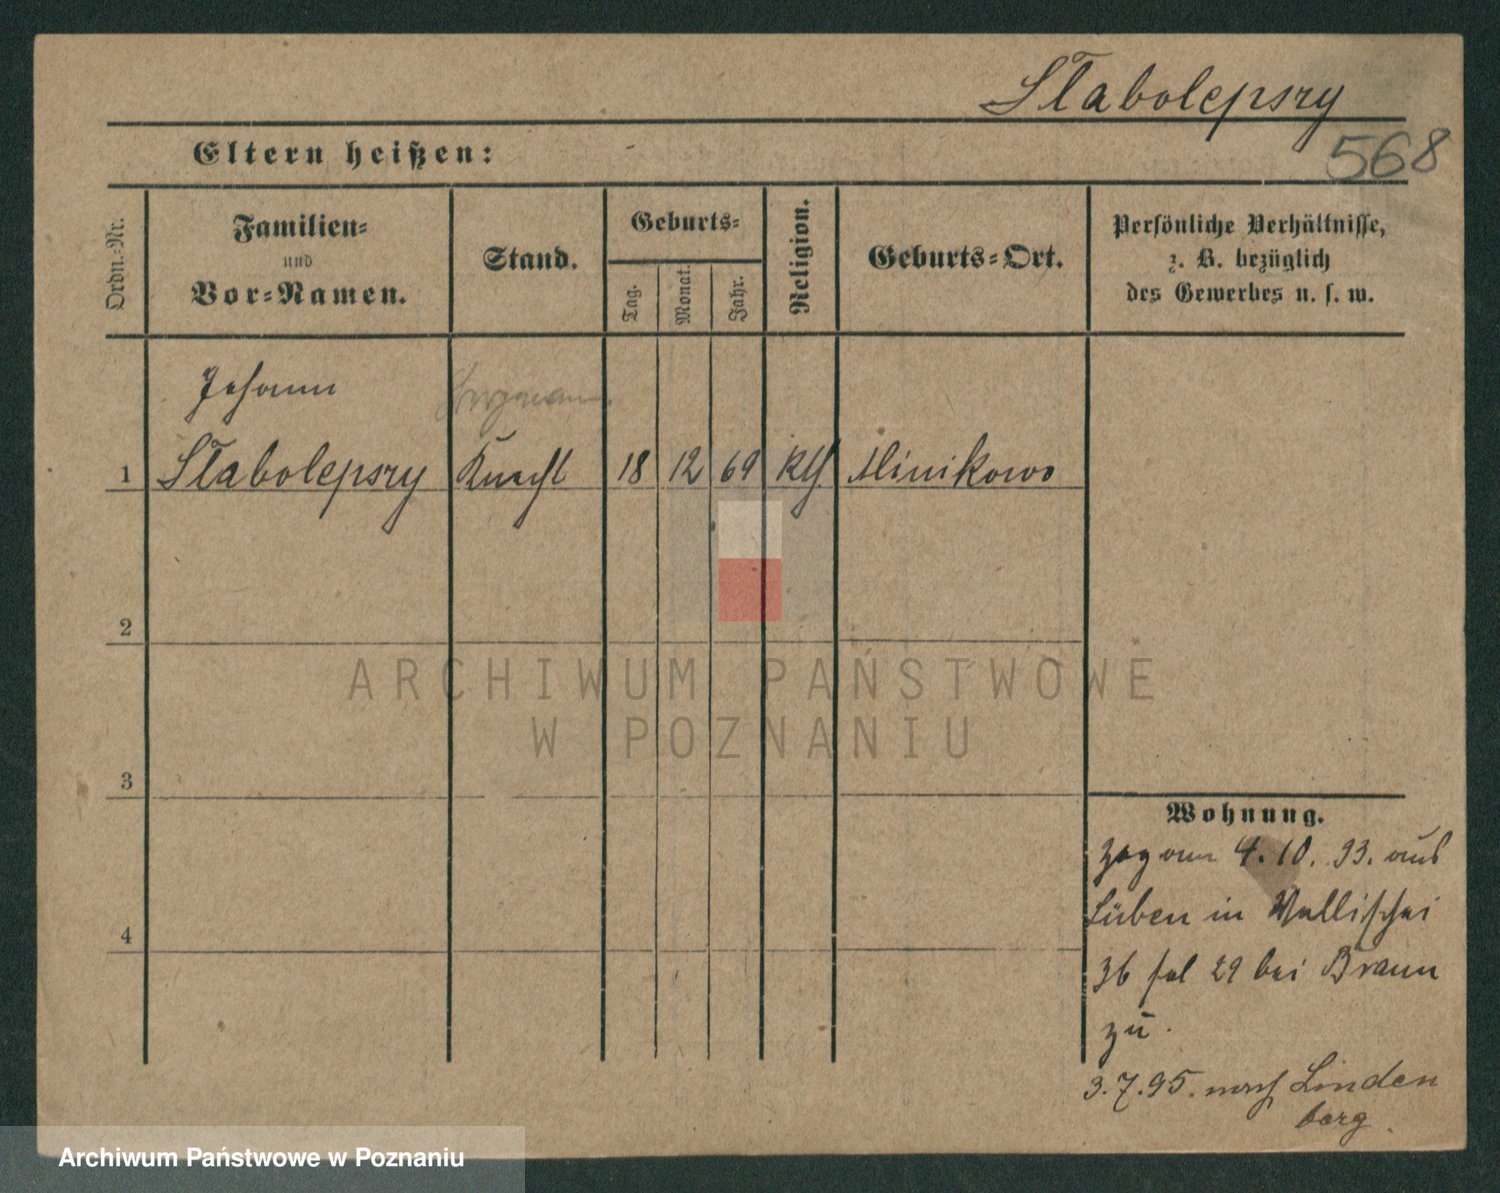 Slabolepszy
568
Eltern heißen:
Ordn.-Nr.
Familien-
und
Vor-Namen.
Stand.
Geburts-
Tag.
Monat.
Jahr.
Religion.
Geburts-Ort.
Persönliche Verhältnisse,
z. B. bezüglich
des Gewerbes u. s. w.
Johann
1 Slabolepszy Knecht 18 12 69 kth Minikowo
2
3
4
Wohnung.
zog am 4. 10. 93. aus
Lüben in Wallischei
36 fol 29 bei Braun
zu.
3. 7. 95. nach Linden
berg.
ARCHIWUM PAŃSTWOWE
W POZNANIU
Archiwum Państwowe w Poznaniu